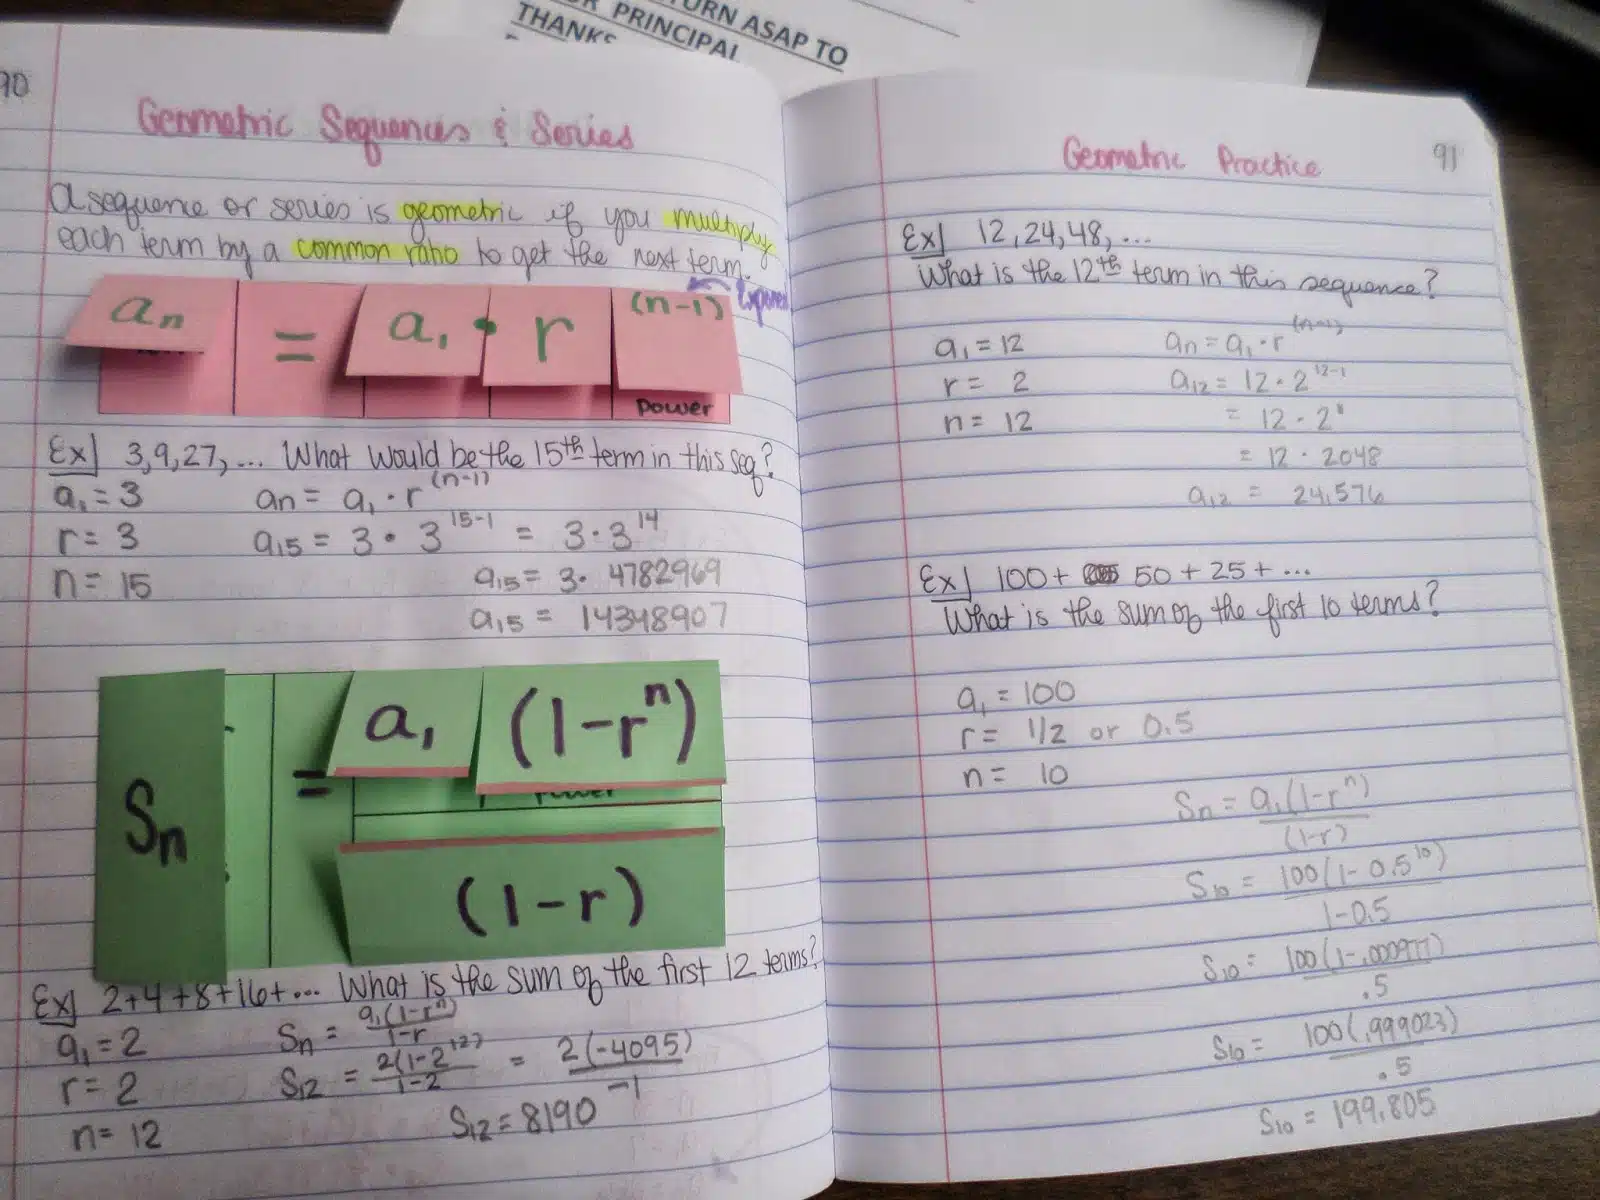 TURN ASAP TO
PRINCIPAL
THANKS
90
Geometric Sequences & Series
A sequence or series is geometric if you multiply
each term by a common ratio to get the next term.
an = a₁ • r (n-1)
power
Ex] 3,9,27,... What would be the 15th term in this seq?
a₁ = 3
an = a₁ · r^(n-1)
r = 3
a₁₅ = 3 • 3^15-1 = 3·3^14
n = 15
a₁₅ = 3· 4782969
a₁₅ = 14348907
Sn = a₁ (1-r^n)
power
(1-r)
Ex] 2+4+8+16+... What is the sum of the first 12 terms?
a₁ = 2
Sn = a₁(1-r^n)
1-r
r = 2
S₁₂ = 2(1-2^12) = 2(-4095)
1-2 -1
n = 12
S₁₂ = 8190
Geometric Practice 91
Ex] 12,24,48,...
What is the 12th term in this sequence?
a₁ = 12
an = a₁ · r^(n-1)
r = 2
a₁₂ = 12 · 2^12-1
n = 12
= 12 · 2^11
= 12 · 2048
a₁₂ = 24,576
Ex] 100 + 50 + 25 + ...
What is the sum of the first 10 terms?
a₁ = 100
r = 1/2 or 0.5
n = 10
Sn = a₁(1-r^n)
(1-r)
S₁₀ = 100(1-0.5^10)
1-0.5
S₁₀ = 100(1-.000977)
.5
S₁₀ = 100(.999023)
.5
S₁₀ = 199.805